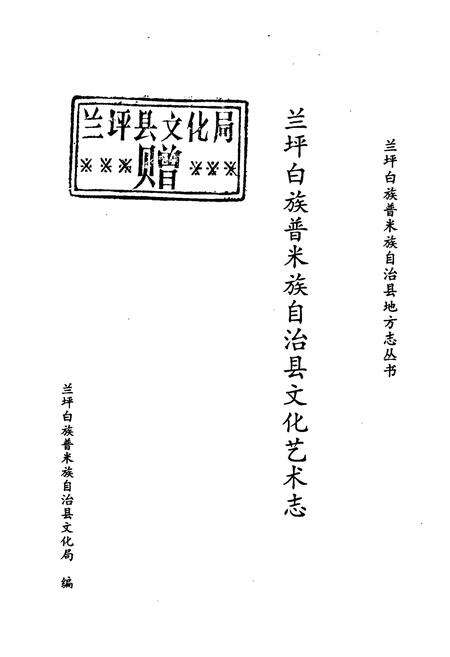 兰坪白族普米族自治县地方志丛书
兰坪白族普米族自治县文化艺术志
兰坪县文化局
※※※赠※※※
兰坪白族普米族自治县文化局 编